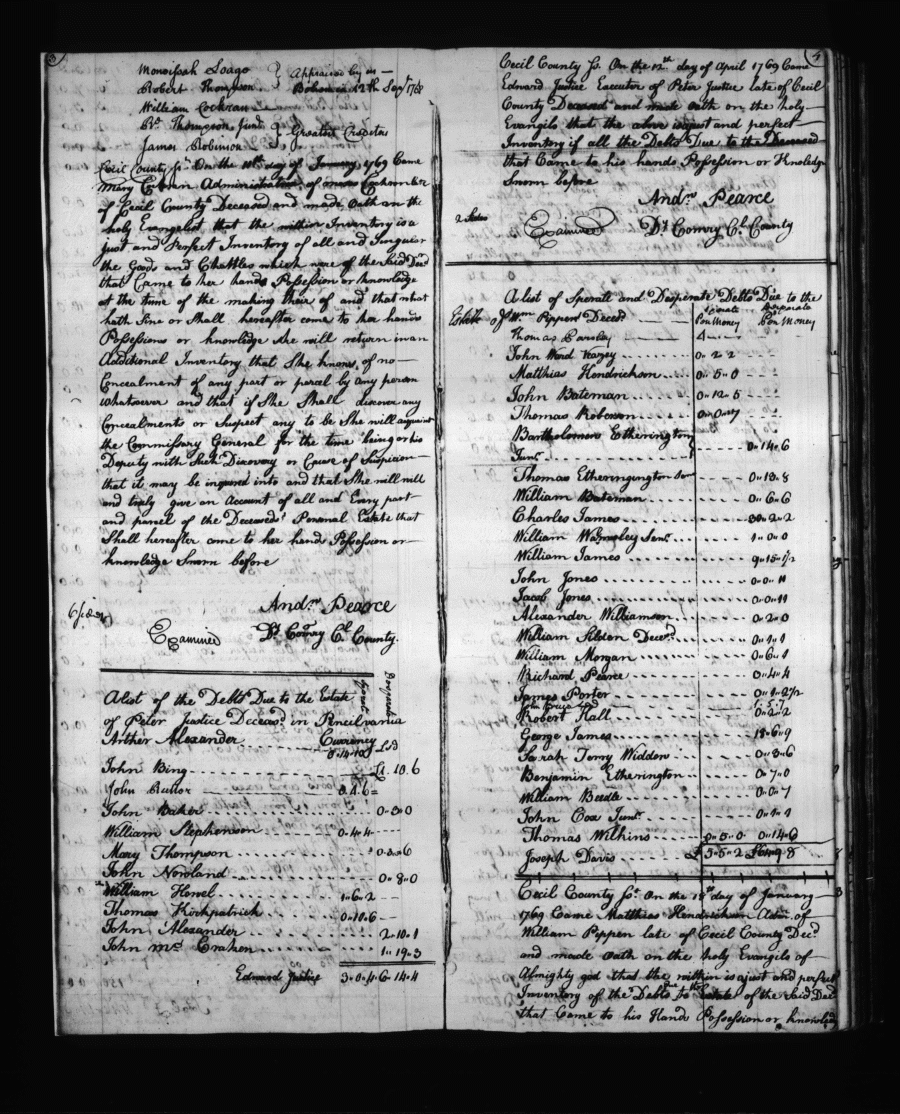 3
Robert Thompson
Appraised by us
William Cockran
Rd Thompson Junr
Greatest Creditrs
James Robinson
Cecil County Ss. On the day of January 1769 Came
Mary Administratrix of
of Cecil County Deceased and made Oath on the
holy Evangelist that the within Inventory is a
just and Perfect Inventory of all and Singular
the Goods and Chattles which were of the Said Decd
that Came to her hands Possession or knowledge
at the time of the making their of and that what
hath Sine or Shall hereafter come to her hands
Possessions or knowledge She will return in an
Additional Inventory that She knows of no
Concealment of any part or parcel by any person
Whatsoever and that if She Shall discover any
Concealments or Suspect any to be She will acquaint
the Commissary General for the time being or his
Deputy with Such Discovery or Cause of Suspicion
that it may be inquired into and that She will will
and truly give an Account of all and Every part
and parcel of the Deceaseds Personal Estate that
Shall hereafter come to her hands Possession or
knowledge Sworn before
Andrw Pearce
Examined Dy Comry Cl County.
A list of the Debts Due to the Estate
of Peter Justice Deceasd in Pencilvania
Currency
Arther Alexander
John Bing 10.6
John
John Baker
William Stephenson 0.4.4
Mary Thompson
John Nowland 0.8.0
William Howel 1.6.2
Thomas Kirkpatrick 0.10.6
John Alexander 2.10.1
John Mc Crahen 1.19.3
Edward Justice
4
Cecil County Ss. On the 12th day of April 1769 Came
Edward Justice Executor of Peter Justice late of Cecil
County Deceased and made Oath on the holy
Evangils that the above is a just and perfect
Inventory if all the Debts Due to the Deceased
that Came to his hands Possession or Knoledge
Sworn before
Andrw Pearce
Examined Dy Comry Cl County
A list of Sperate and Desperate Debts Due to the
Estate of Wm Pippen Decd
Sperate Desperate
Pen Money Pen Money
Thomas
John Ward 0.2.2
Matthias Hendrickson 0.5.0
John Bateman 0.12.5
Thomas Roberson
Bartholomew Etherington
Junr 0.14.6
Thomas Etheringington Senr 0.13.8
William Bateman 0.6.6
Charles James
William Senr 1.0.0
William James
John Jones 0.0.11
Jacob Jones 0.0.11
Alexander Williamson 0.2.0
William Decd 0.1.1
William Morgan 0.6.1
Richard Pearce 0.4.4
James Porter 0.1.2½
Robert Hall 0.2.2
George James 18.6.9
Sarah Terry Widdow 0.3.6
Benjamin Etherington 0.7.0
William Beedle 0.0.7
John Cox Junr 0.1.1
Thomas Wilkins 0.5.0 0.14.6
Joseph Davis £
Cecil County Ss. On the 18th day of January
1769 Came Matthias Hendrickson Admr of
William Peppen late of Cecil County Decd
and made Oath on the holy Evangils of
Almighty god that the within is a just and perfect
Inventory of the Debts Due to the Estate of the Said Decd
that Came to his Hands Possession or knowledg